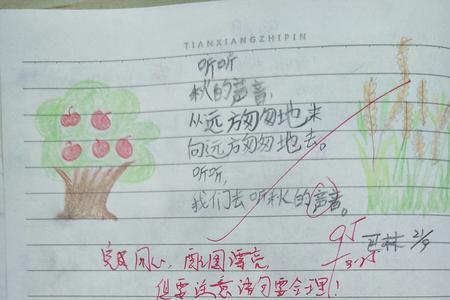 TIANXIANGZHIPIN
听听
秋的声音,
从远方匆匆地来
向远方匆匆地去。
听听,
我们去听秋的声音。
95
21/9
完成用心，配图漂亮,
但要注意语句要合理!